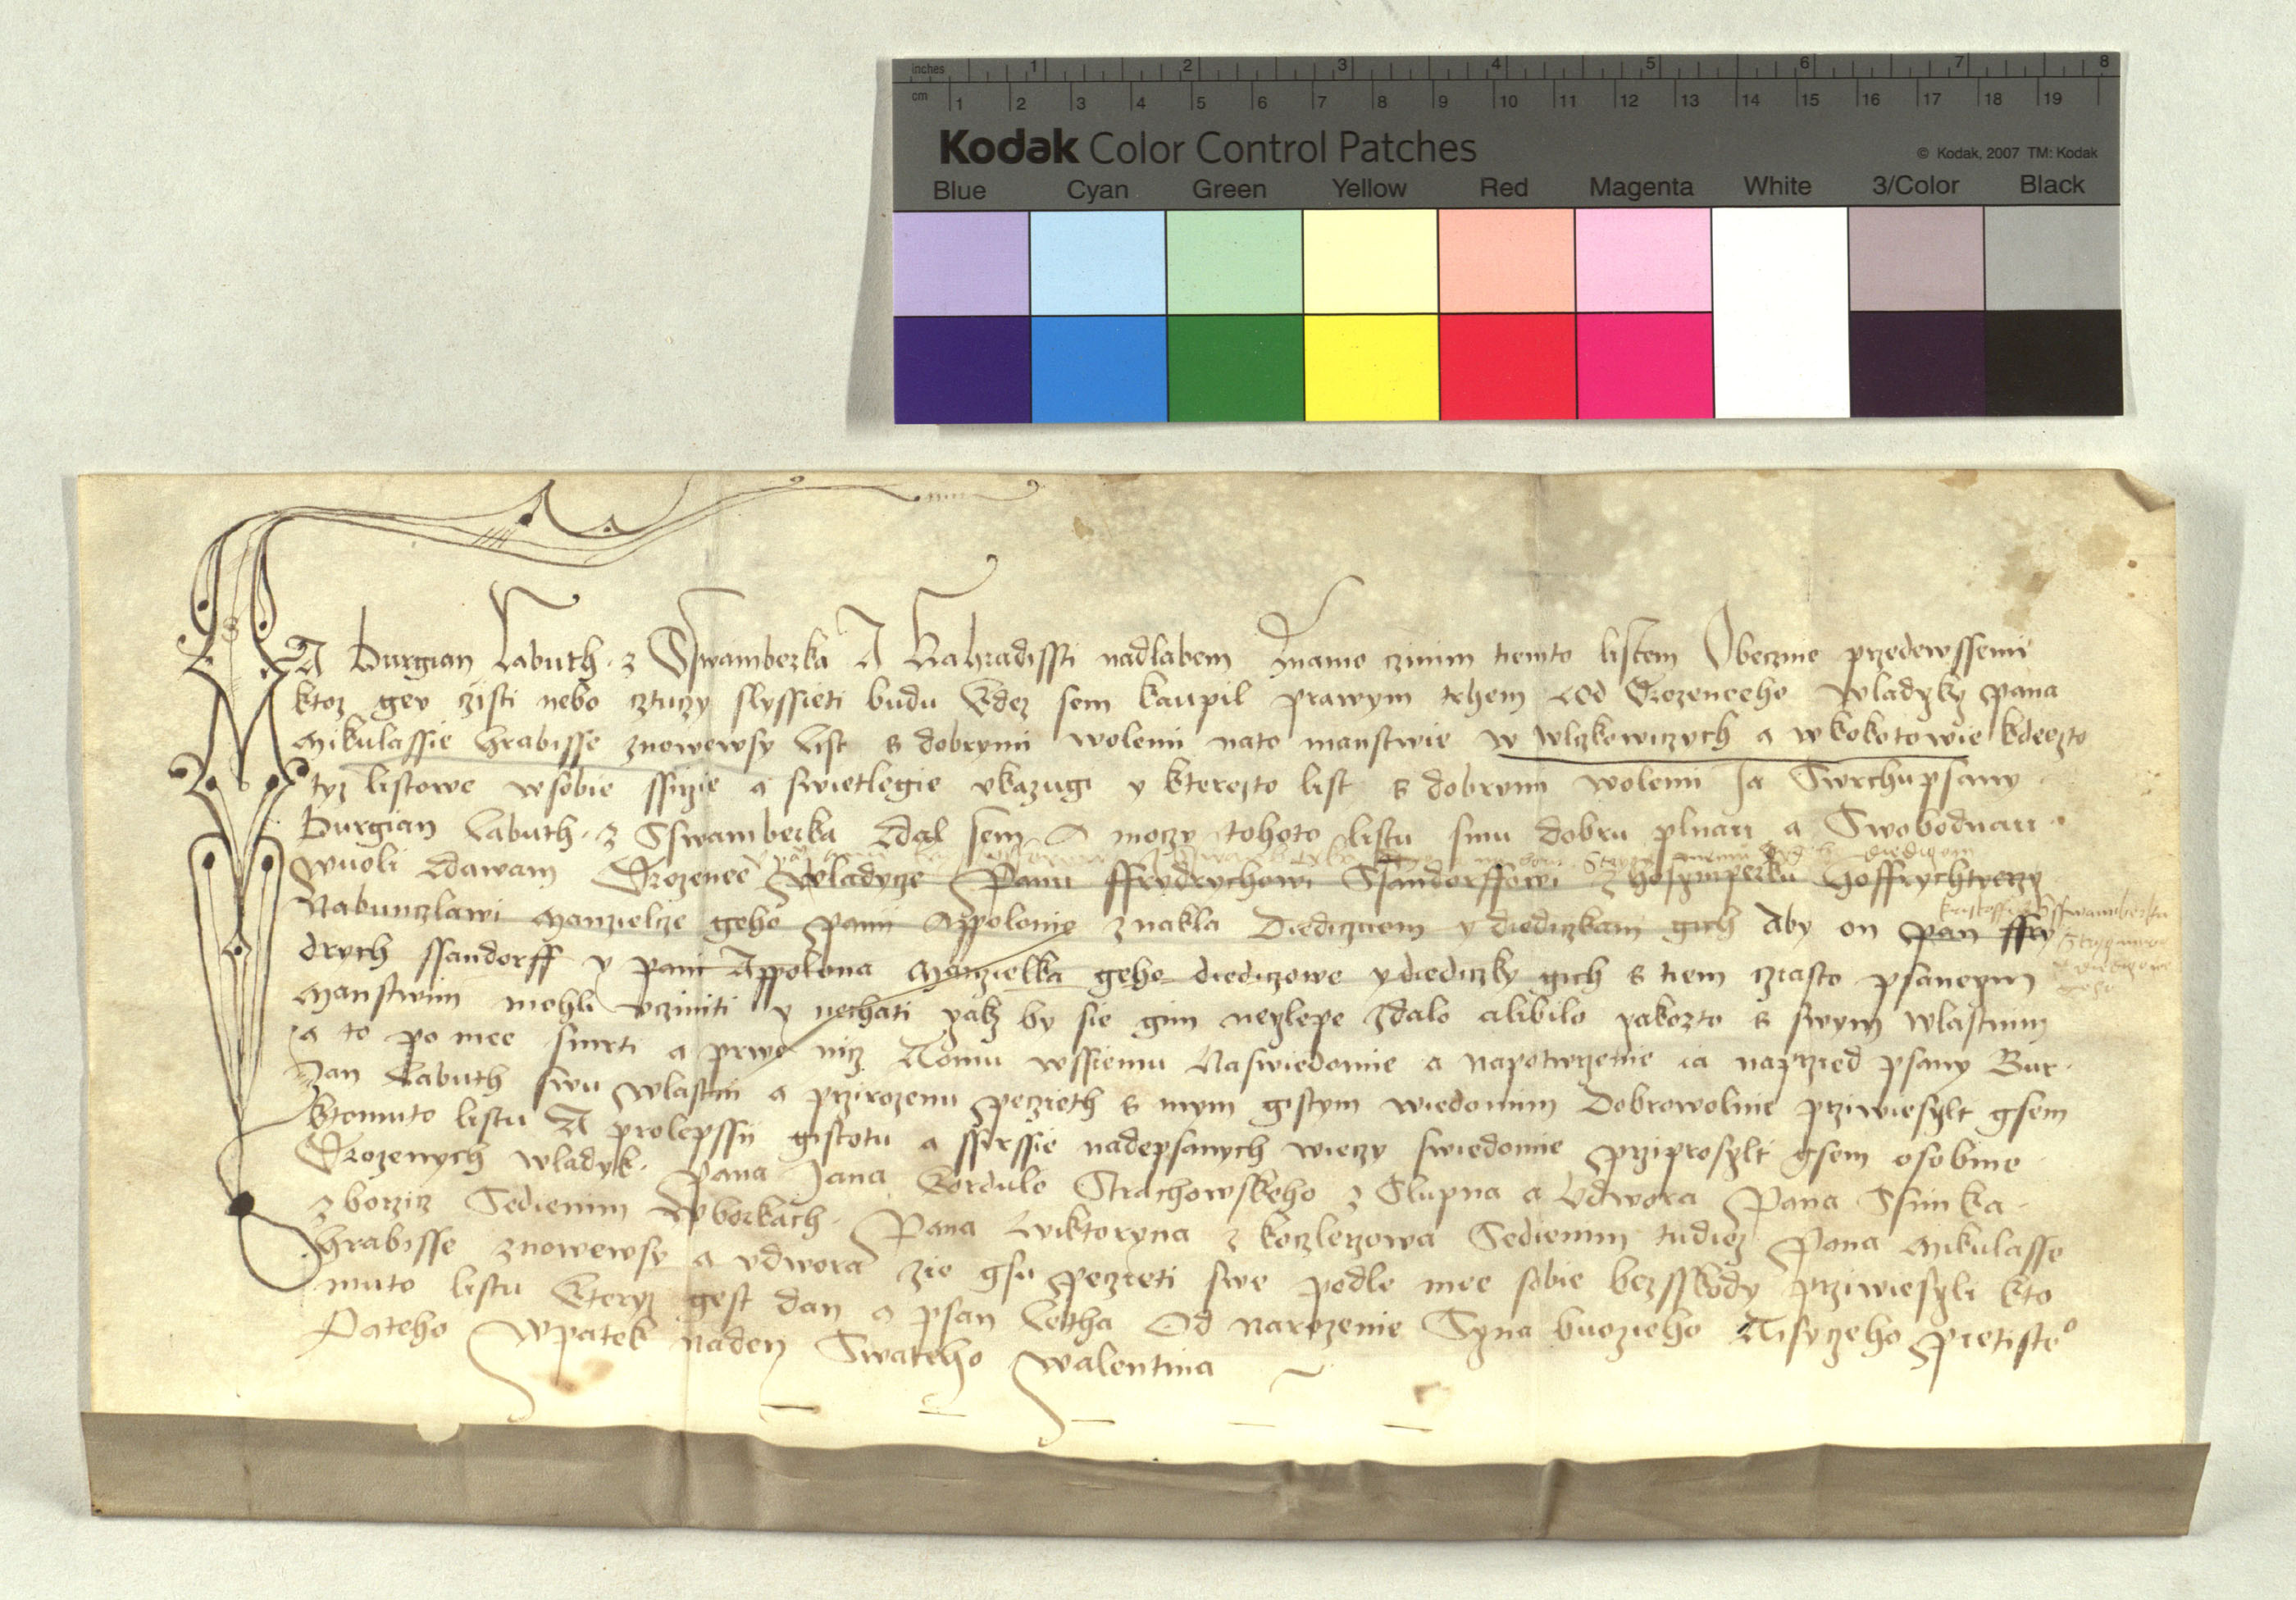 inches 1 2 3 4 5 6 7 8
cm 1 2 3 4 5 6 7 8 9 10 11 12 13 14 15 16 17 18 19
Kodak Color Control Patches
© Kodak, 2007 TM: Kodak
Blue Cyan Green Yellow Red Magenta White 3/Color Black
JA Burgian Labuth z Sswamberka A Nahradissti nadlabem Znamo czinim tiemto listem Obecznie przedewssemi
ktoz gey czisti nebo cztuczy slyssieti budu Kdez sem kaupil prawym trhem Od Vrozeneho Wladyky pana
Mikulassie Hrabisse znowewsy list s dobrymi wolemi nato manstwie w Wlczkowiczych a w kokotowie kdeczto
tyz listowe wsobie ssirzie a swietlegie vkazugi y kterezto list s dobrymi wolemi Ja Swrchupsany
Burgian Labuth z Sswamberka dal sem A moczy tohoto listu smu dobru plnau a Swobodnau
wuoli dawam Vrozenee Wladycze Panu ffrydrychowi Ssandorffowi z hoffrychterzy
Nabunczlawi Manzielcze geho pani Appolonie znakla Diediczuom y diediczkam gich Aby on pan ffry
drych ssandorff y pani Appolona Manzielka geho diediczowe y diediczky gich s tiem cziasto psanym
Manstwim mohli vcziniti y nechati yakz by sie gim neylepe zdalo a libilo yakozto s swym wlastnim
a to po mee smrti a prwe nicz Tomu wssiemu Naswiedomie a napotwrzenie ia naprzied psany Bur
zan Labuth swu wlastni a przirozenu peczieth s mym gistym wiedomim Dobrowolnie przywiesylt gsem
ktomuto listu A prolepssii gistotu a ssirssie nadepsanych wieczy swiedomie przyprosylt gsem osobnie
Vrozenych wladyk Pana Jana Kordule Strachowskeho z Slupna a Vdwora Pana Ssimka
z borzicz Sedienim Wborkach Pana Wiktoryna z koczlerzowa Sedienim tudiez Pana Mikulasse
Hrabisse znowewsy a vdwora zie gsu peczieti swe podle mee sobie bezsskody przywiesyli kto
muto listu Kteryz gest dan a psan Letha Od narozenie Syna buozieho Tisyczeho pietisteo
Pateho Wpatek naden Swateho Walentina